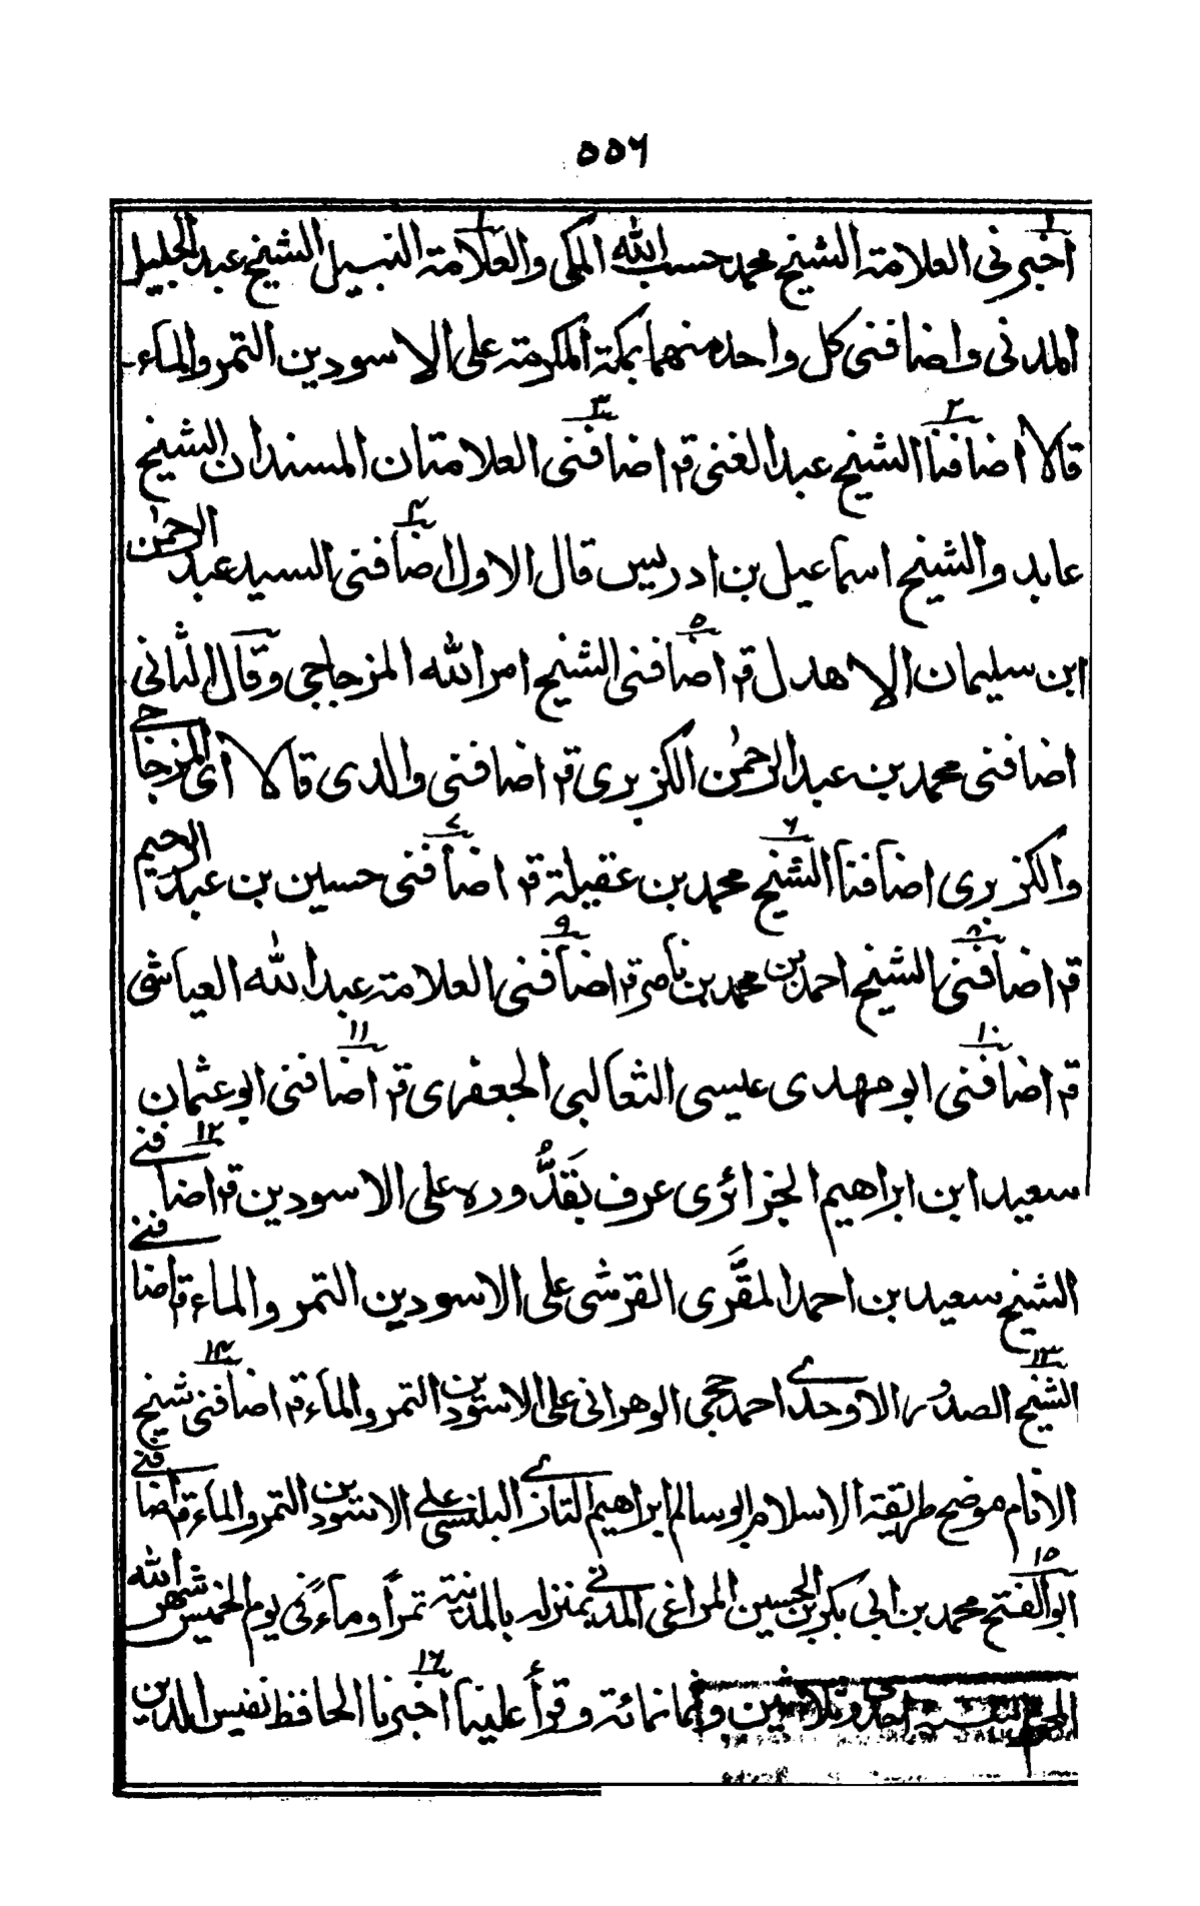 ٥٥٦
اخبرنى العلامة الشيخ محمد حسب الله المكى والعلامة النبيل الشيخ عبد الجليل
المدنى واضافنى كل واحد منهما بمكة المكرمة على الاسودين التمر والماء
قالا اضافنا الشيخ عبد الغنى قم اضافنى العلامتان المسندان الشيخ
عابد والشيخ اسماعيل بن ادريس قال الاول اضافنى السيد عبد الرحمٰن
ابن سليمان الاهدل قم اضافنى الشيخ امر الله المزجاجى وقال الثانى
اضافنى محمد بن عبد الرحمٰن الكزبرى قم اضافنى والدى قالا اى المزجاجى
والكزبرى اضافنا الشيخ محمد بن عقيلة قم اضافنى حسين بن عبد الرحيم
قم اضافنى الشيخ احمد بن محمد بن ناصر قم اضافنى العلامة عبد الله العياشى
قم اضافنى ابو مهدى عيسى الثعالبى الجعفرى قم اضافنى ابو عثمان
سعيد ابن ابراهيم الجزائرى عرف بقَدُّوره على الاسودين قم اضافنى
الشيخ سعيد بن احمد المقَّرى القرشى على الاسودين التمر والماء قم اضافنى
الشيخ الصدر الاوحدى احمد حجى الوهرانى على الاسودين التمر والماء قم اضافنى شيخ
الانام موضح طريقة الاسلام ابو سالم ابراهيم التازى البلنسى على الاسودين التمر والماء قم اضافنى
ابو الفتح محمد بن ابى بكر بن الحسين المراغى المدنى بمنزله بالمدينة تمرأ وماءً فى يوم الخميس شهر الله
احدى وثلاثين وثمانمائة وقرأ علينا اخبرنا الحافظ نفيس الدين
١ ٢ ٣ ٤ ٥ ٦ ٧ ٨ ٩ ١٠ ١١ ١٢ ١٣ ١٤ ١٥ ١٦